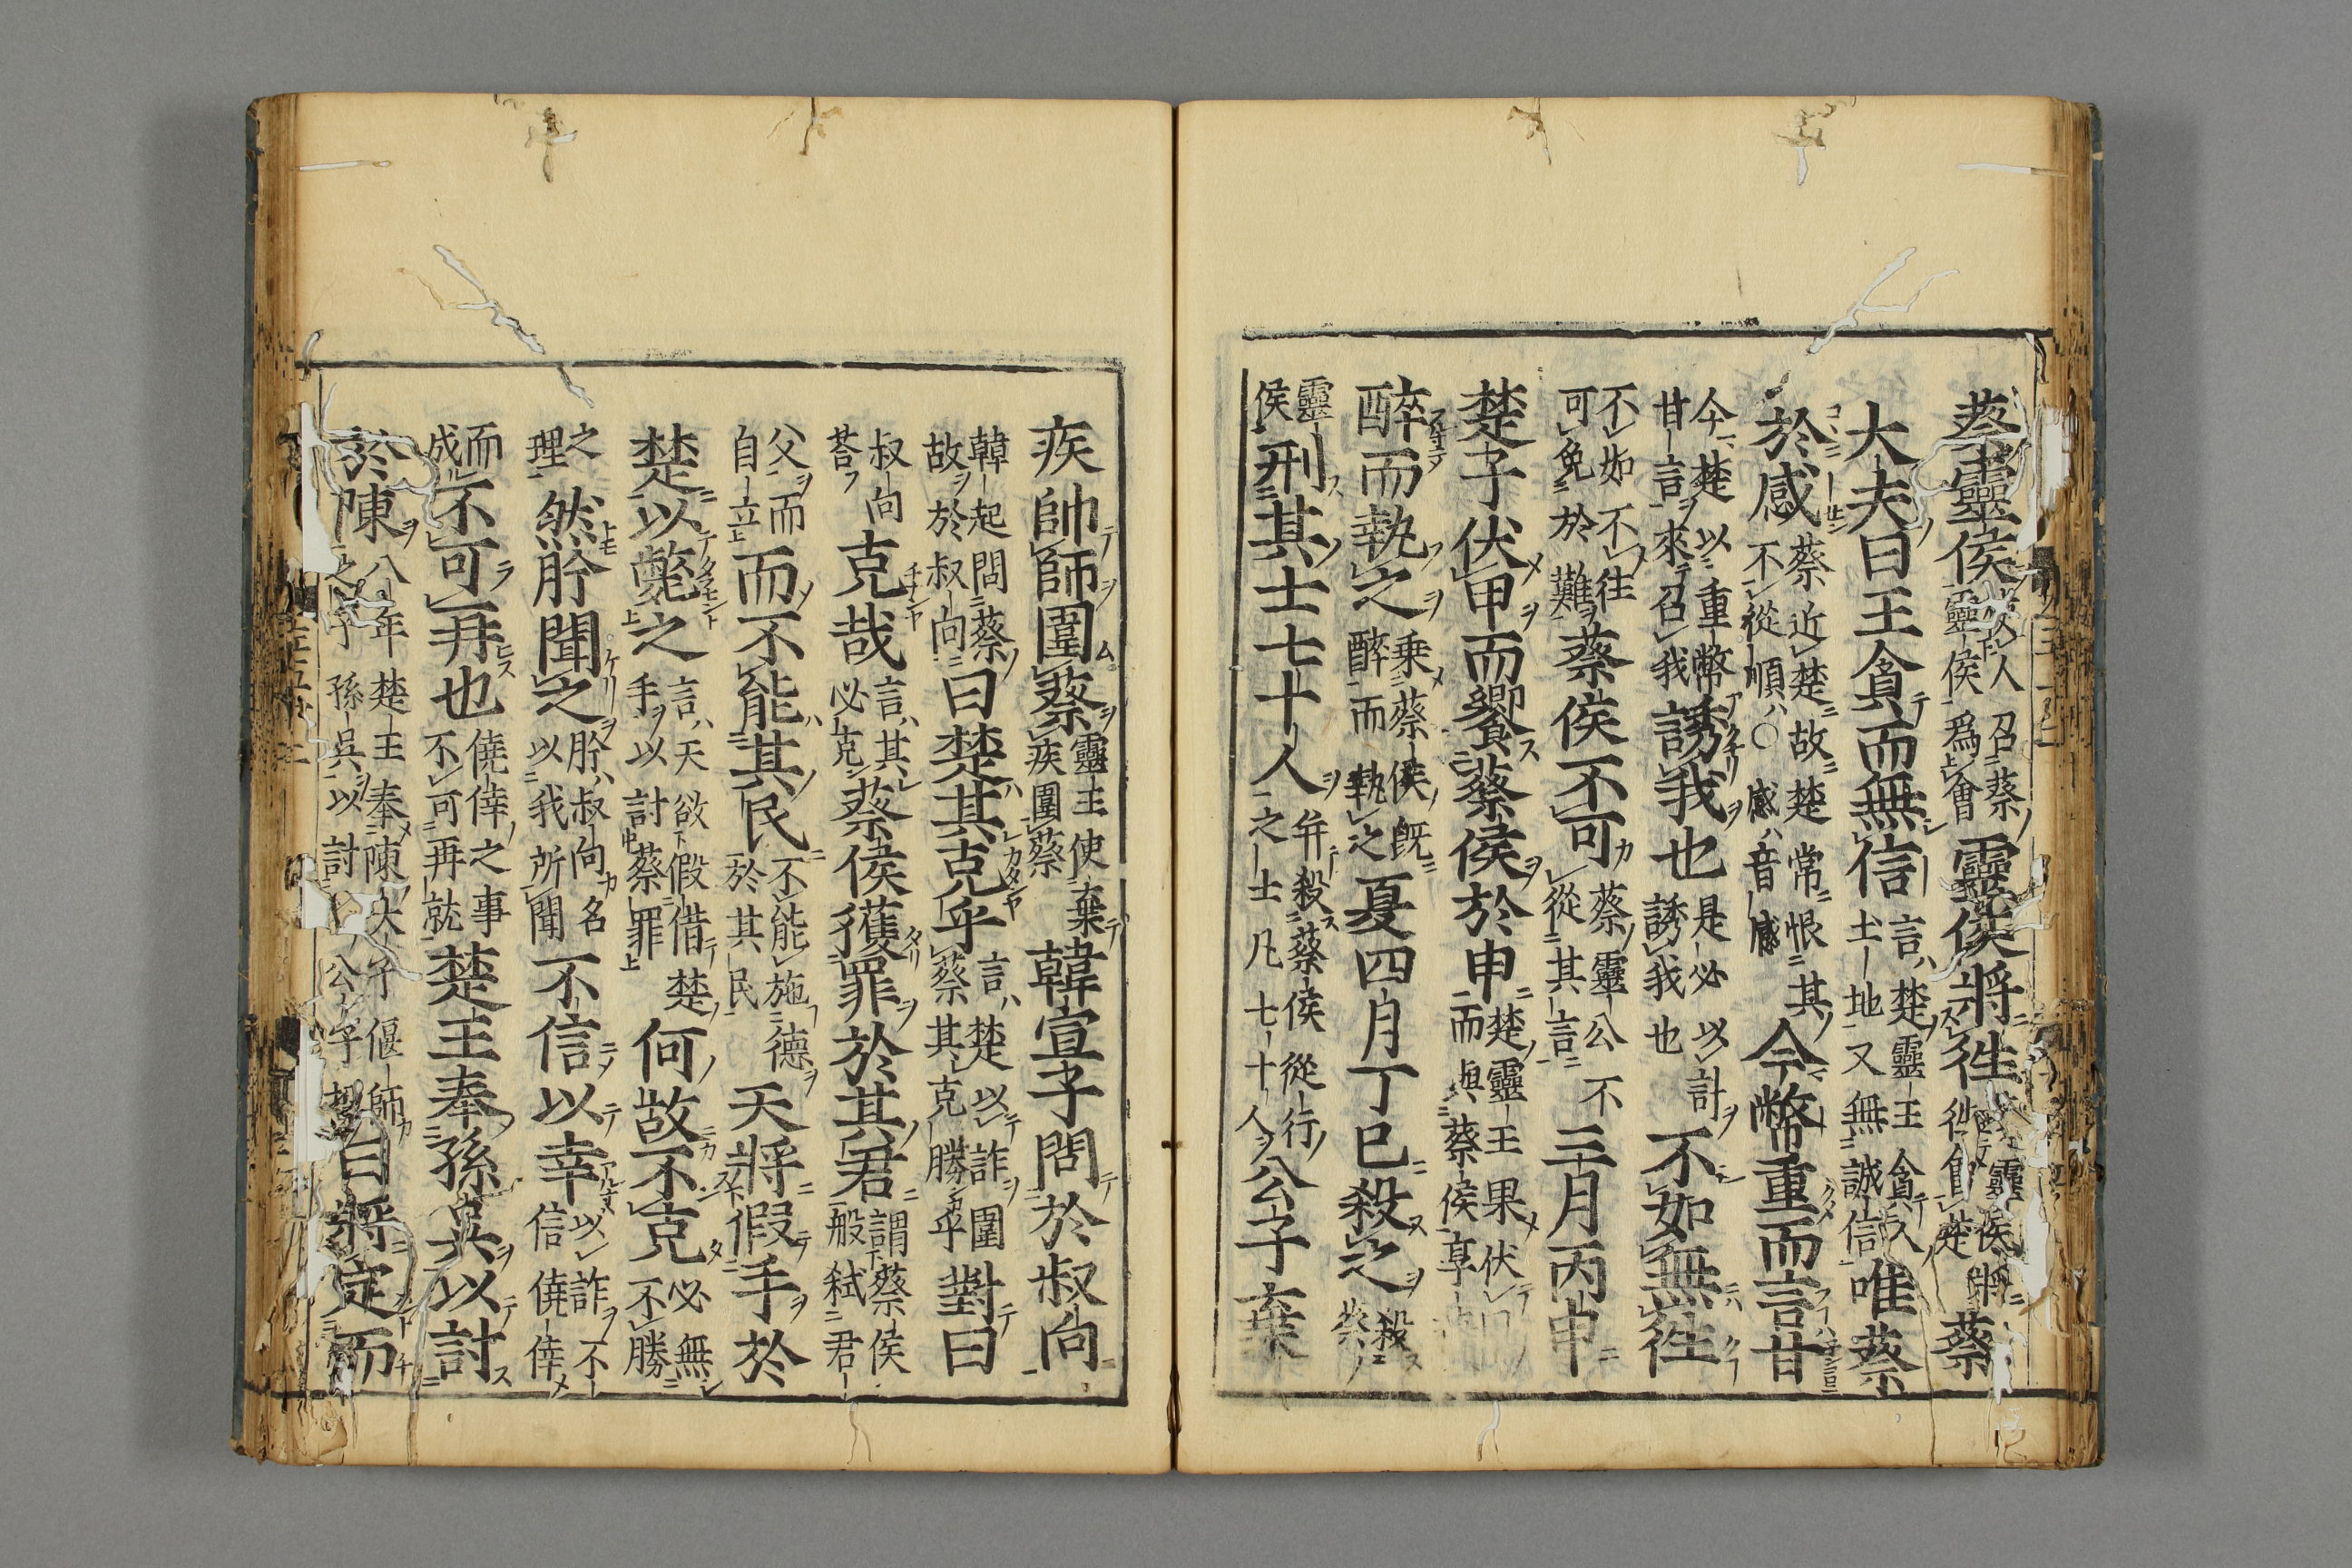 蔡靈侯人召蔡靈侯爲會靈侯將往靈侯將往見楚蔡
大夫曰王貪而無信言楚靈王貪人土地又無誠信唯蔡
於感蔡近楚故楚常恨其不從順○感音感今幣重而言甘
今楚以重幣甘言來召我誘我也是必以計誘我也不如無往
不如不往可免於難蔡侯不可蔡靈公不從其言三月丙申
楚子伏甲而饗蔡侯於申楚靈王果伏而與蔡侯享
醉而執之乗蔡侯既醉而執之夏四月丁巳殺之殺蔡
靈侯刑其士七十人并殺蔡侯從行之士凡七十人公子棄
疾帥師圍蔡靈王使棄疾圍蔡韓宣子問於叔向
韓起問蔡故於叔向曰楚其克乎言楚以詐圍蔡其克勝乎對曰
叔向荅克哉言其必克蔡侯獲罪於其君謂蔡侯般弑君
父而自立而不能其民不能施德於其民天將假手於
楚以斃之言天欲假借楚手以討蔡罪何故不克必無不勝
之理然肸聞之肸叔向名以我所聞不信以幸以詐不信僥倖
而成不可再也僥倖之事不可再就楚王奉孫吳以討
於陳八年楚王奉陳大子偃師之子孫吳以討公子招曰將定而